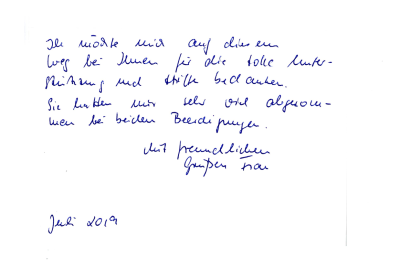 Ich möchte mich auf diesem
Weg bei Ihnen für die tolle Unter-
stützung und Hilfe bedanken.
Sie hatten mir sehr viel abgenom-
men bei beiden Beerdigungen.
Mit freundlichen
Grüßen Frau
Juli 2019